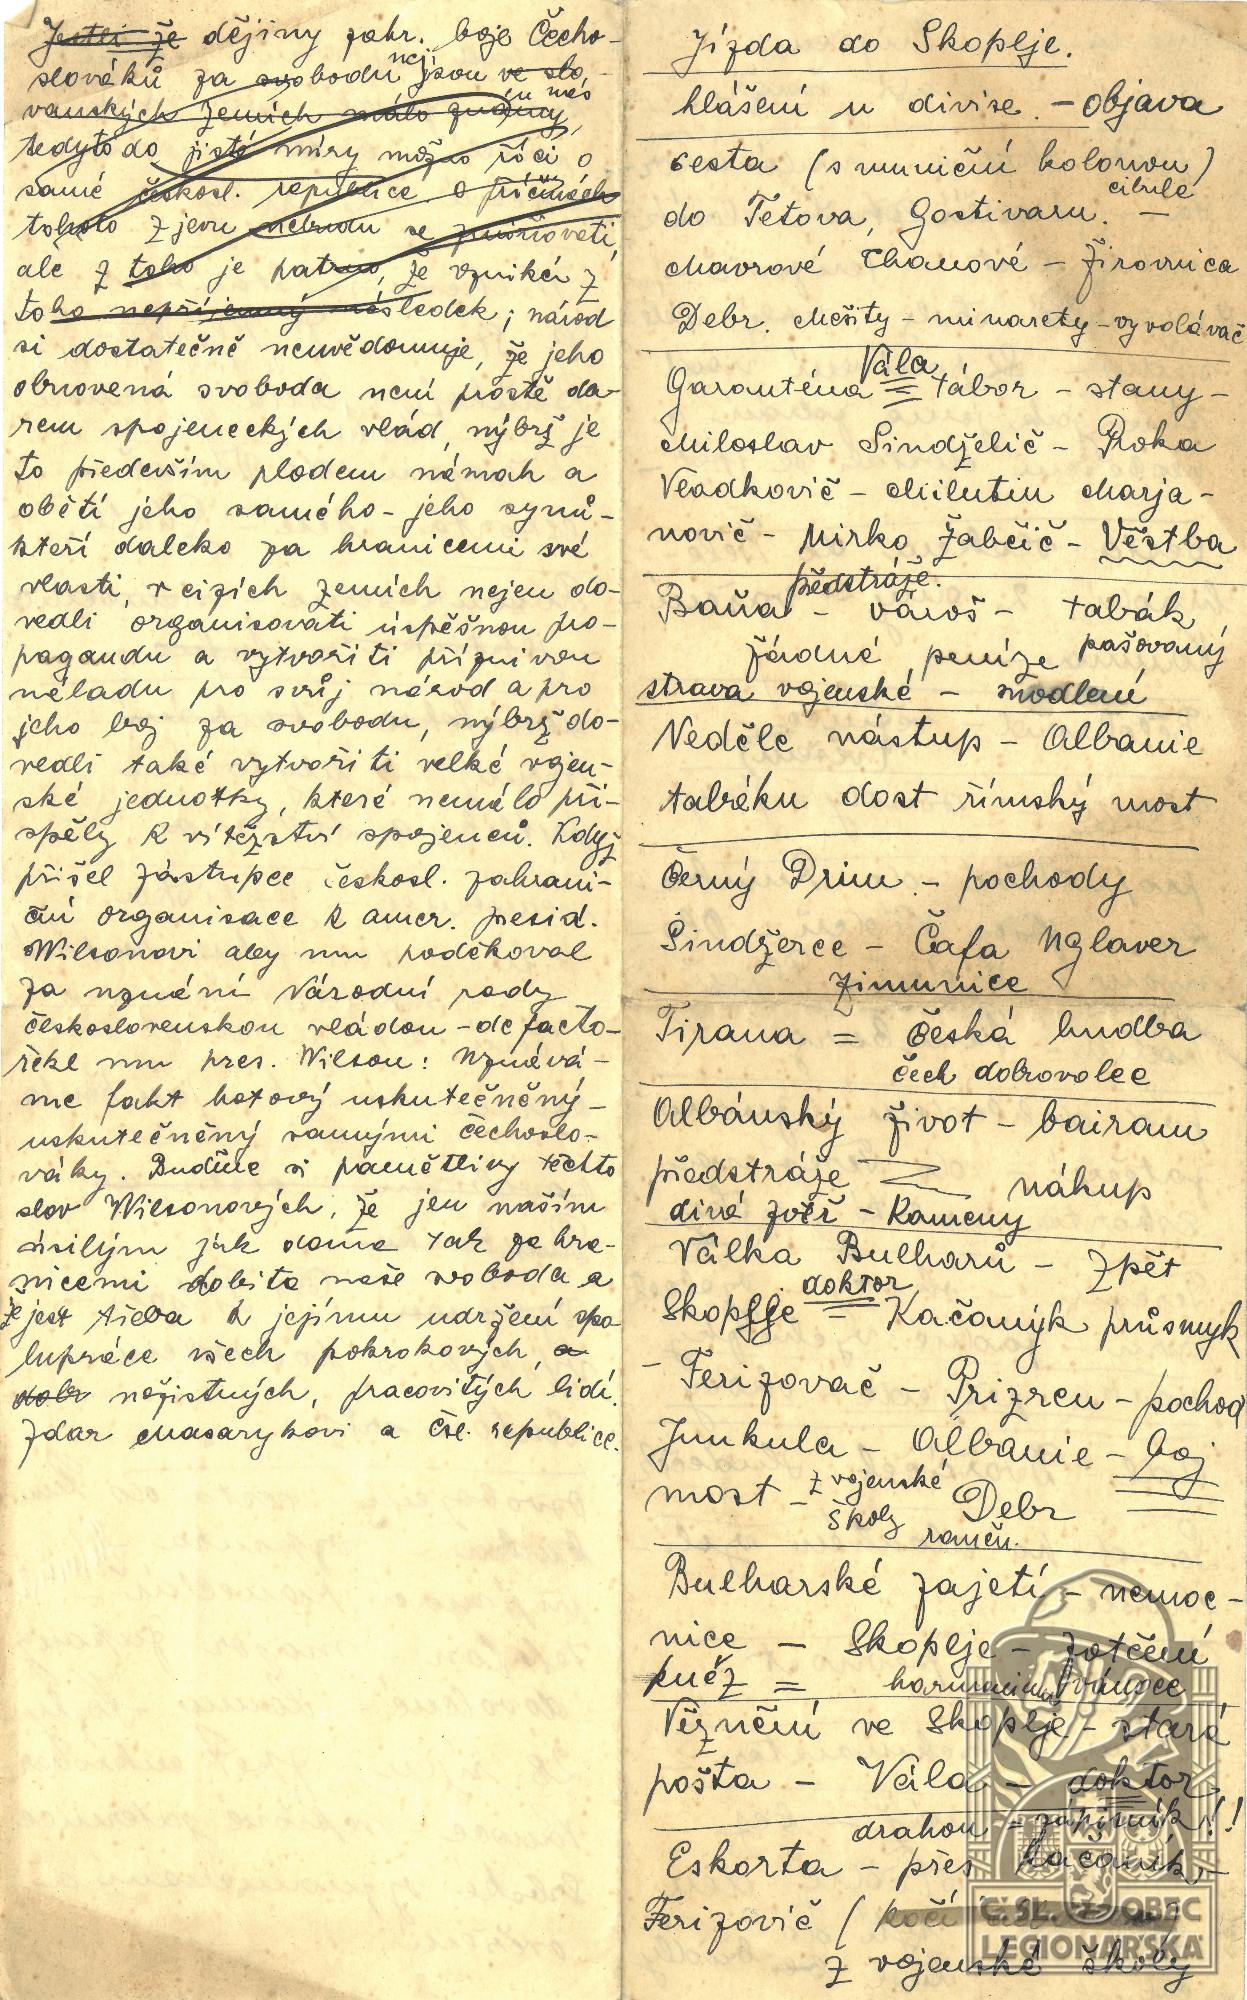 Jestli že dějiny zahr. boje Čecho-
slováků za svobodu nej jsou ve slo-
vanských zemích málo známy, u nás
tedy to do jisté míry možno říci o
samé českosl. republice. O příčinách
tohoto zjevu nebudu se zmiňovati,
ale z toho je patrno, že vzniká z
toho nepříjemný následek; národ
si dostatečně neuvědomuje, že jeho
obnovená svoboda není prostě da-
rem spojeneckých vlád, nýbrž je
to především plodem námah a
obětí jeho samého - jeho synů -
kteří daleko za hranicemi své
vlasti, v cizích zemích nejen do-
vedli organisovati úspěšnou pro-
pagandu a vytvořiti příznivou
náladu pro svůj národ a pro
jeho boj za svobodu, nýbrž do-
vedli také vytvořiti velké vojen-
ské jednotky, které nemálo při-
spěly k vítězství spojenců. Když
přišel zástupce českosl. zahrani-
ční organisace k amer. presid.
Wilsonovi aby mu poděkoval
za uznání Národní rady
československou vládou - de facto-
řekl mu pres. Wilson: Uznává-
me fakt hotový uskutečněný -
uskutečněný samými čechoslo-
váky. Buďme si pamětlivy těchto
slov Wilsonových, že jen naším
úsilým jak doma tak za hra-
nicemi dobita naše svoboda a
že jest třeba k jejímu udržení spo
lupráce všech pokrokových, a
dobr nezištných, pracovitých lidí.
Zdar Masarykovi a čsl. republice.
Jízda do Skoplje.
hlášení u divise. - objava
cesta (s muniční kolonou)
do Tetova, Gostivaru. cibule -
Mavrové Chanové - Žirovnica
Debr. Mešity - minarety - vyvolávač
Garanténa = Vála tábor - stany -
Miloslav Sindželič - Roka
Vladkovič - Milutin Marja-
novič - Mirko Žabčič - Věstba
předstráže.
Baňa - város - tabák
žádné peníze pašovaný
strava vojenská - modlení
Neděle nástup - Albanie
tabáku dost římský most
Černý Drim - pochody
Šindžerce - Čafa Nglaver
Zimunice
Tirana = česká hudba
čech dobrovolec
Albánský život - bairam
předstráže nákup
divá zvěř - Kameny
Válka Bulharů - Zpět
Skoplje = doktor Kačanýk průsmyk
- Ferizovač - Prizren - pochod
Junkula - Albanie - boj
most - z vojenské
školy Debr
raněn.
Bulharské zajetí - nemoc-
nice - Skoplje - zatčení
kněz = harmonium vánoce
Věznění ve Skoplje - stará
pošta - Vála - doktor
drahou = zápisník!!
Eskorta - přes Kačaník -
Ferizovič (kočí
z vojenské školy
ČSL. OBEC
LEGIONÁŘSKÁ